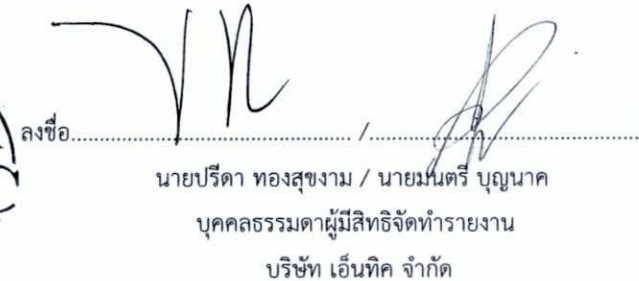 ลงชื่อ............................................... / ...............................................
นายปรีดา ทองสุขงาม / นายมนตรี บุญนาค
บุคคลธรรมดาผู้มีสิทธิจัดทำรายงาน
บริษัท เอ็นทิค จำกัด